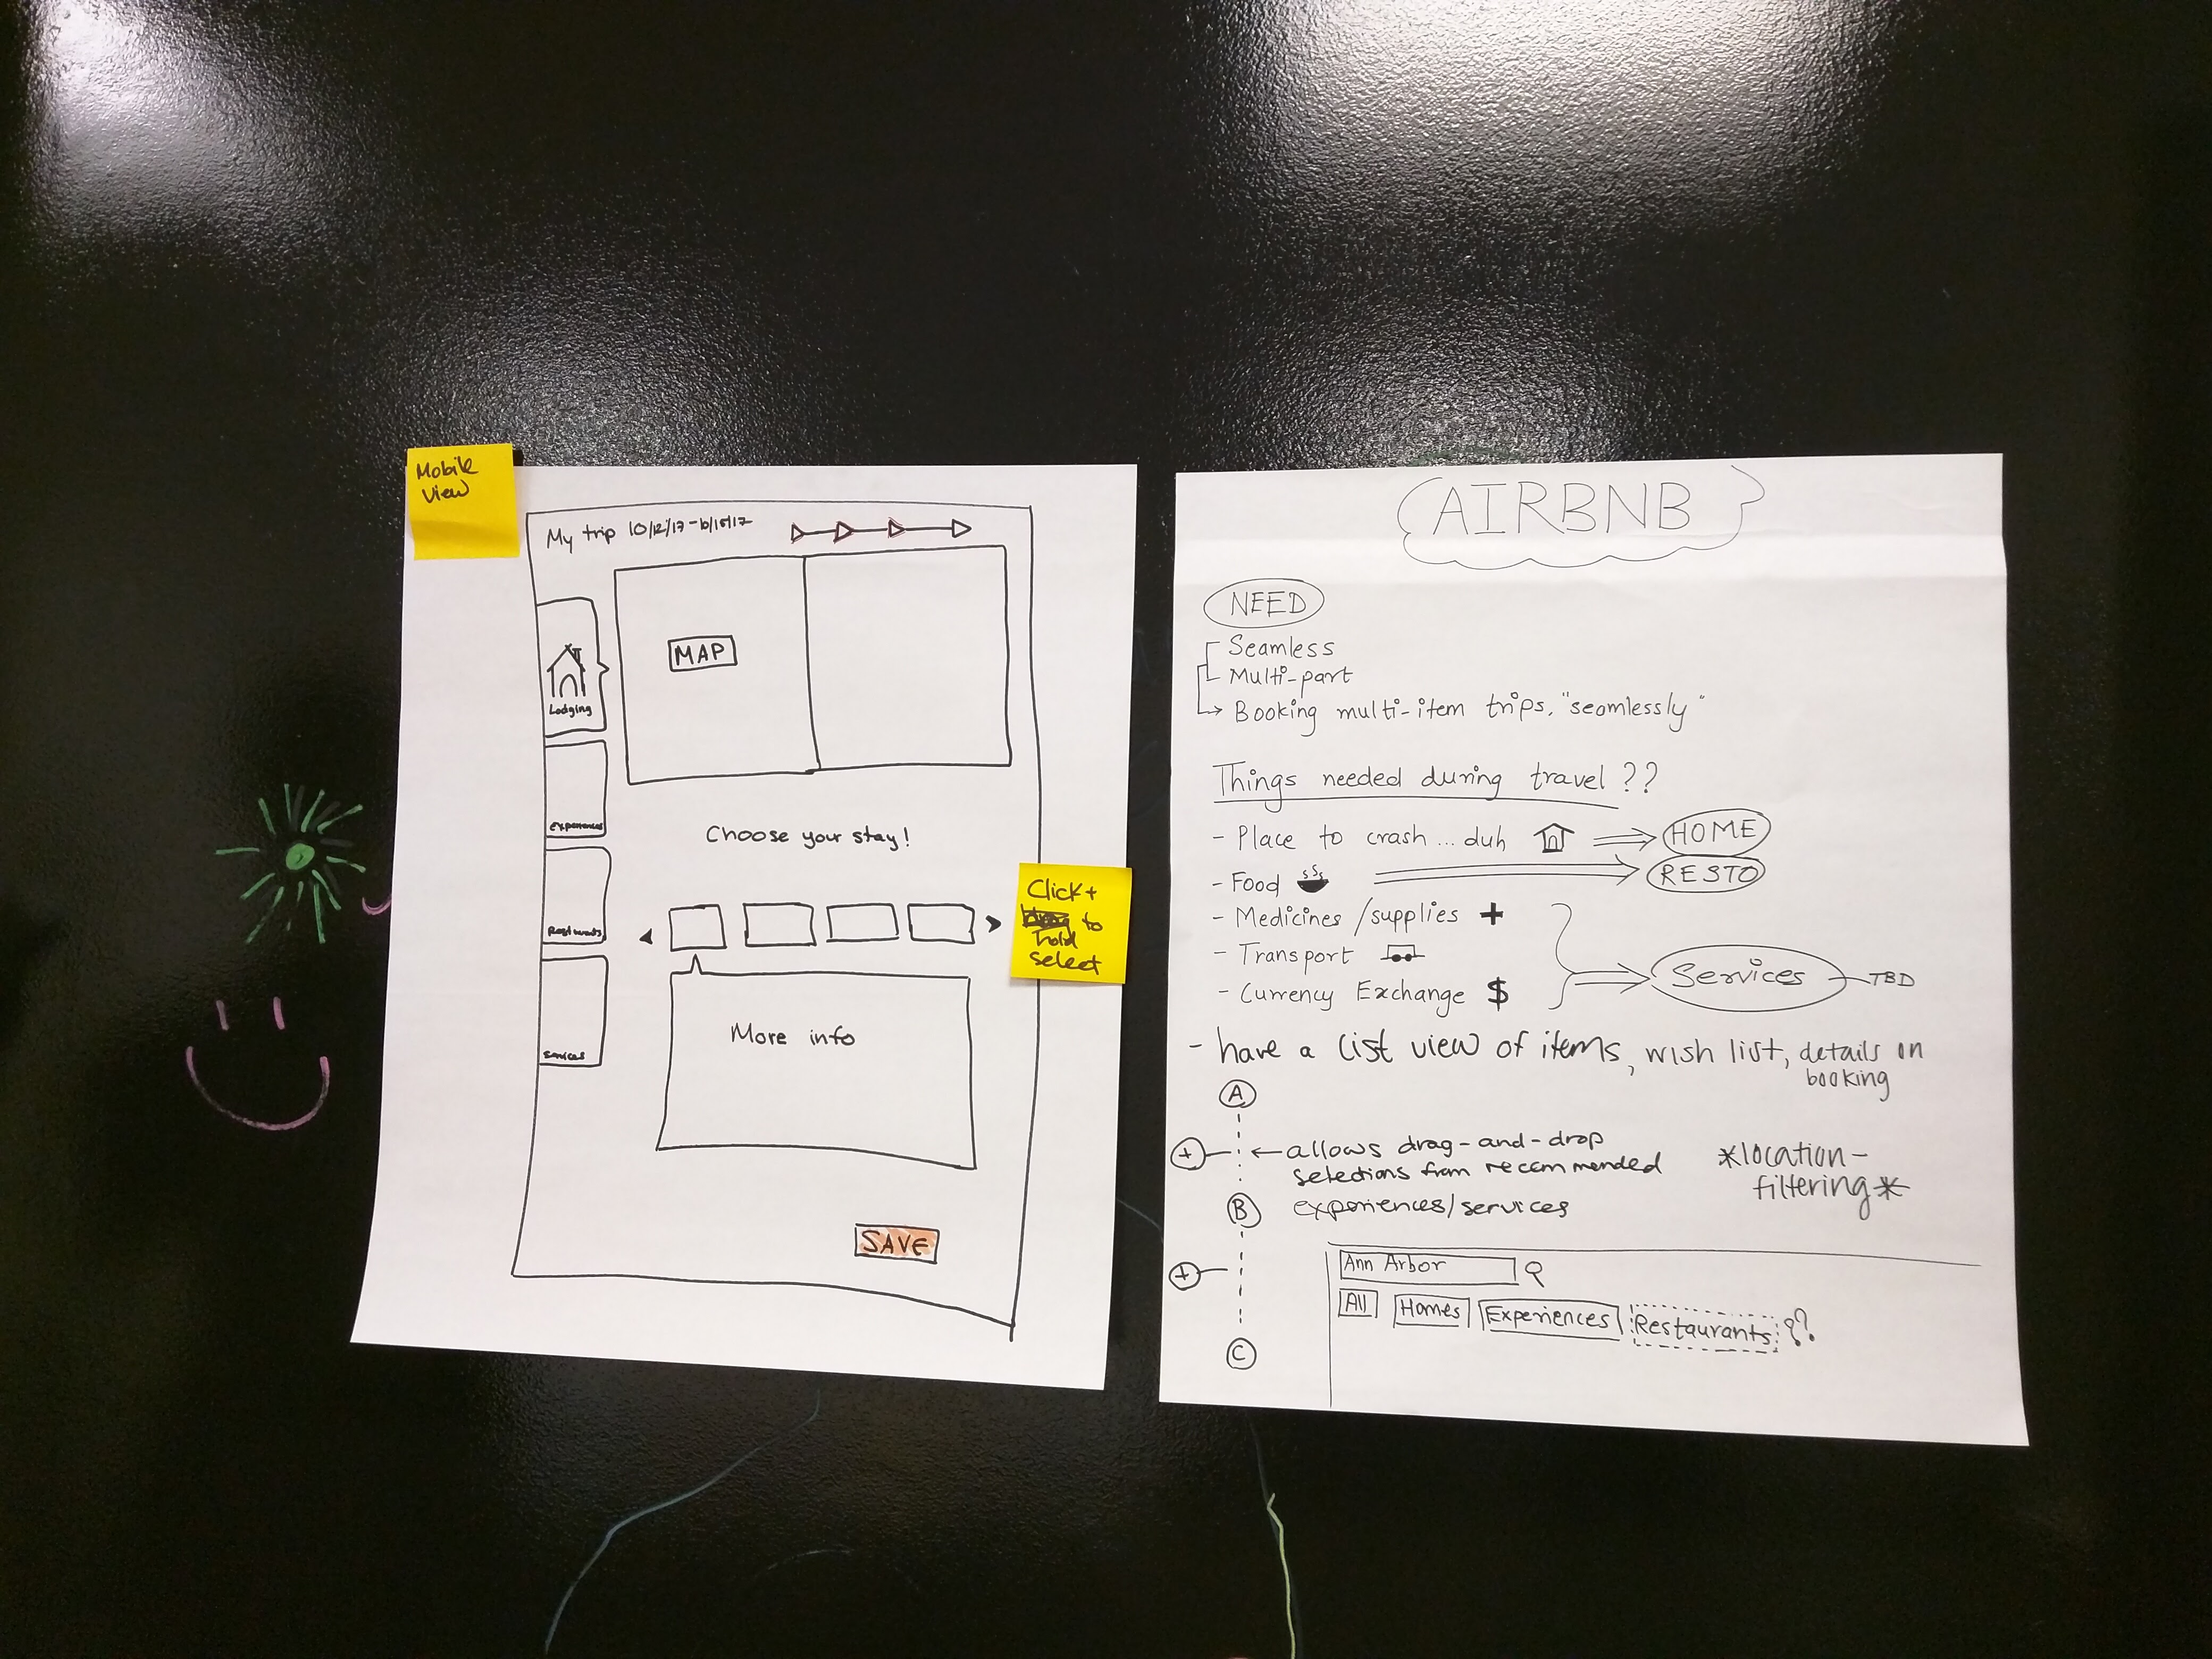 Mobile
View
My trip 10/12/17 - 10/15/17
MAP
Lodging
Experiences
Choose your stay!
Restaurants
Click +
to
hold
select
More info
Services
SAVE
AIRBNB
NEED
Seamless
Multi-part
Booking multi-item trips. "seamlessly"
Things needed during travel ??
- Place to crash ... duh HOME
- Food RESTO
- Medicines / supplies +
- Transport
- Currency Exchange $
Services TBD
- have a list view of items, wish list, details on
booking
A
+ allows drag-and-drop
selections from recommended
B experiences/services
*location-
filtering*
Ann Arbor
+
All Homes Experiences Restaurants ??
C